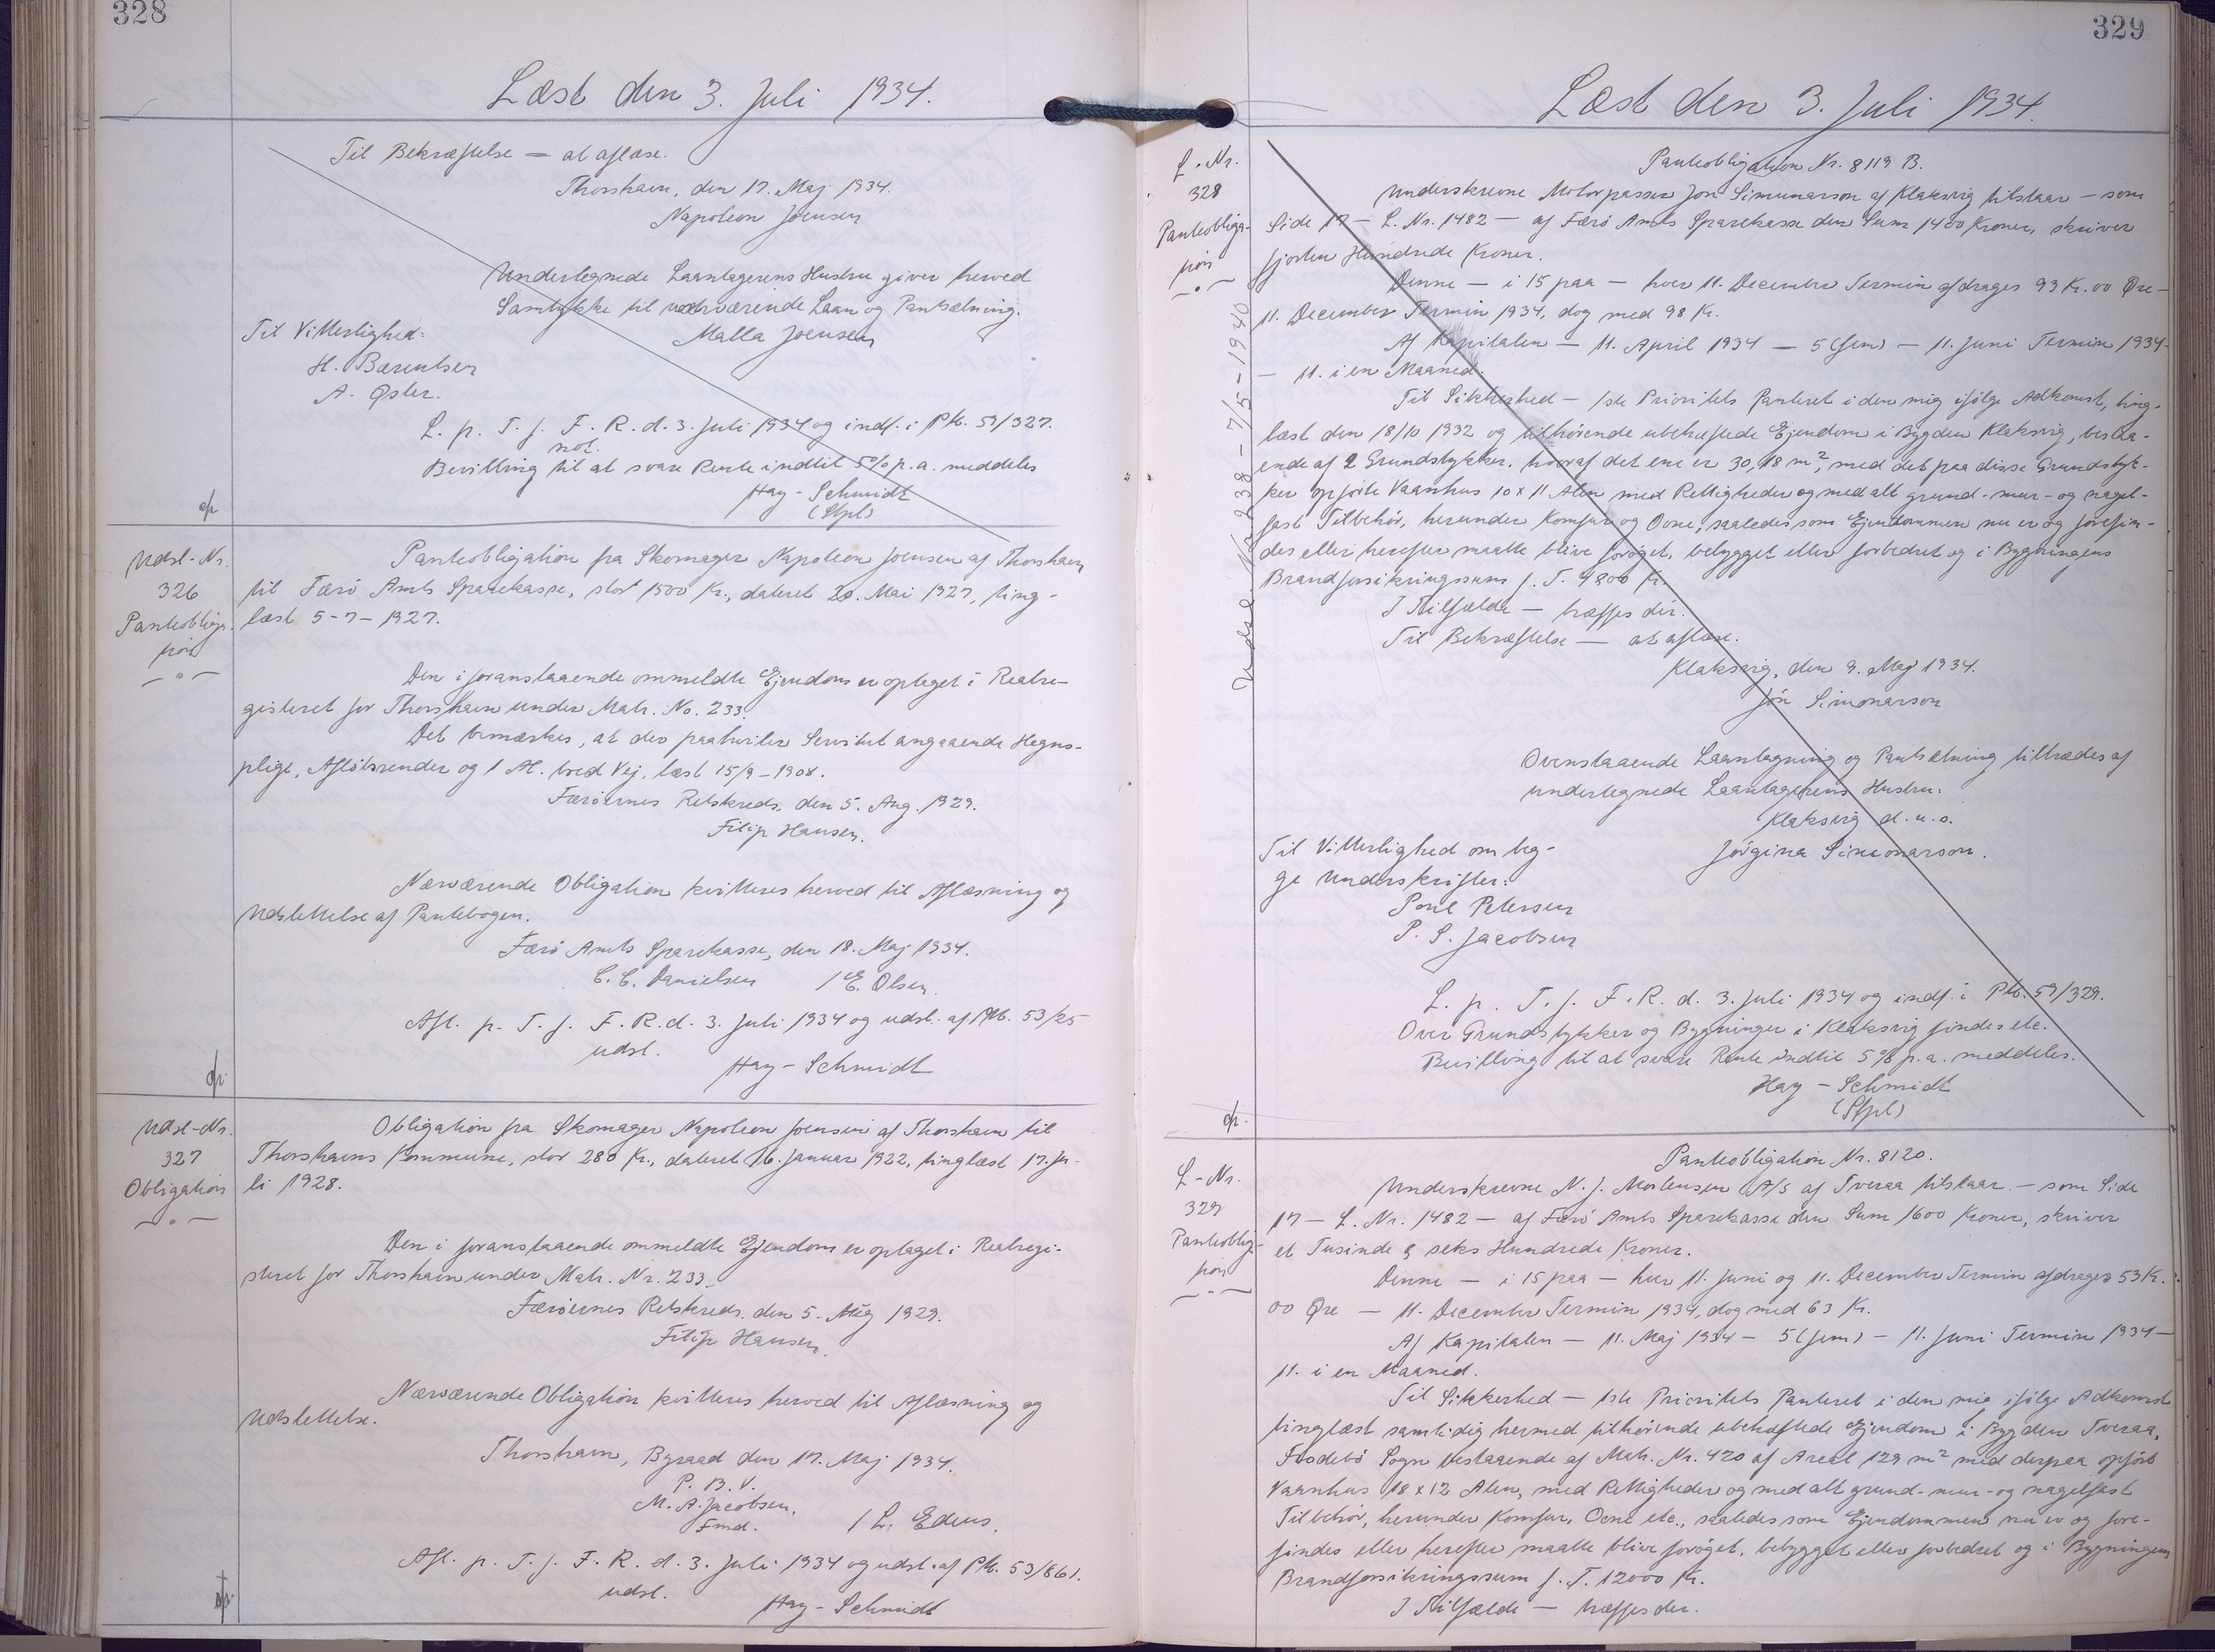 328
Læst den 3. Juli 1934.
Til Bekræftelse — at aflæse.
Thorshavn, den 17. Maj 1934.
Napoleon Joensen
Undertegnede Laantagerens Hustru giver herved
Samtykke til nærværende Laan og Pantsætning.
Malla Joensen
Til Vitterlighed:
H. Barentsen
A. Øster.
L. p. T. f. F. R. d. 3. Juli 1934 og indf. i Pb. 59/327.
not.
Bevilling til at svare Rente indtil 5% p.a. meddeles
Hay-Schmidt
(Sfpl)
Udsl-Nr.
326
Panteobliga-
tion
Panteobligation fra Skomager Napoleon Joensen af Thorshavn
til Færø Amts Sparekasse, stor 1500 Kr., dateret 20. Mai 1927, ting-
læst 5-7-1927.
Den i foranstaaende ommeldte Ejendom er optaget i Realre-
gisteret for Thorshavn under Matr. No. 233.
Det bemærkes, at der paahviler Servitut angaaende Hegns-
pligt, Afløbsrender og 1 Al. bred Vej, læst 15/9-1908.
Færøernes Retskreds, den 5. Aug. 1929.
Filip Hansen.
Nærværende Obligation kvitteres herved til Aflæsning og
Udslettelse af Pantebogen.
Færø Amts Sparekasse, den 18. Maj 1934.
C. C. Danielsen / E. Olsen.
Afl. p. T. f. F. R. d. 3. Juli 1934 og udsl. af Pb. 53/25
udsl.
Hay-Schmidt
Udsl-Nr.
327
Obligation
Obligation fra Skomager Napoleon Joensen af Thorshavn til
Thorshavns Kommune, stor 280 Kr., dateret 16. Januar 1922, tinglæst 17. Ju-
li 1928.
Den i foranstaaende ommeldte Ejendom er optaget i Realregi-
steret for Thorshavn under Matr. Nr. 233.
Færøernes Retskreds, den 5. Aug 1929.
Filip Hansen.
Nærværende Obligation kvitteres herved til Aflæsning og
Udslettelse.
Thorshavn, Byraad den 17. Maj 1934.
P. B. V.
M. A. Jacobsen,
Fmd. / L. Edens.
Afl. p. T. f. F. R. d. 3. Juli 1934 og udsl. af Pb. 53/861.
udsl.
Hay-Schmidt
329
Læst den 3. Juli 1934.
L-Nr.
328
Panteobliga-
tion
Panteobligation Nr. 8119 B.
Underskrevne Motorpasser Jón Simonarson af Klaksvig tilstaar — som
Side 17 — L. Nr. 1482 — af Færø Amts Sparekasse den Sum 1400 Kroner, skriver
fjorten Hundrede Kroner.
Denne — i 15 paa — hver 11. December Termin afdrages 93 Kr. 00 Øre —
11. December Termin 1934, dog med 98 Kr.
Af Kapitalen — 11. April 1934 — 5 (fem) — 11. Juni Termin 1934 —
— 11. i en Maaned.
Til Sikkerhed — 1ste Prioritets Panteret i den mig ifølge Adkomst, ting-
læst den 18/10 1932 og tilhørende ubehæftede Ejendom i Bygden Klaksvig, bestaa-
ende af 2 Grundstykker, hvoraf det ene er 30,18 m², med det paa disse Grundstyk-
ker opførte Vaanhus 10 x 11 Alen med Rettigheder og med alt grund- mur- og nagel-
fast Tilbehør, herunder Komfur og Ovne, saaledes som Ejendommen nu er og forefin-
des eller herefter maatte blive forøget, bebygget eller forbedret og i Bygningens
Brandforsikringssum f. T. 4800 Kr.
I Tilfælde — træffes der.
Til Bekræftelse — at aflæse.
Klaksvig, den 9. Maj 1934.
Jón Simonarson
Ovenstaaende Laantagning og Pantsætning tiltrædes af
undertegnede Laantagerens Hustru.
Klaksvig d. u. s.
Jørgina Simonarson.
Til Vitterlighed om beg-
ge Underskrifter:
Poul Petersen
P. S. Jacobsen
L. p. T. f. F. R. d. 3. Juli 1934 og indf. i Pb. 59/329.
Over Grundstykker og Bygninger i Klaksvig findes etc.
Bevilling til at svare Rente indtil 5% p.a. meddeles.
Hay-Schmidt
(Sfpl)
L-Nr.
329
Panteobliga-
tion
Panteobligation Nr. 8120.
Underskrevne N. J. Mortensen A/S af Tveraa tilstaar — som Side
17 — L. Nr. 1482 — af Færø Amts Sparekasse den Sum 1600 Kroner, skriver
et Tusinde & seks Hundrede Kroner.
Denne — i 15 paa — hver 11. Juni og 11. December Termin afdrages 53 Kr.
00 Øre — 11. December Termin 1934, dog med 63 Kr.
Af Kapitalen — 11. Maj 1934 — 5 (fem) — 11. Juni Termin 1934 —
11. i en Maaned.
Til Sikkerhed — 1ste Prioritets Panteret i den mig ifølge Adkomst
tinglæst samtidig hermed tilhørende ubehæftede Ejendom i Bygden Tveraa,
Frodebø Sogn bestaaende af Matr. Nr. 420 af Areal 129 m² med derpaa opført
Vaanhus 18 x 12 Alen, med Rettigheder og med alt grund- mur- og nagelfast
Tilbehør, herunder Komfur, Ovne etc., saaledes som Ejendommen nu er og fore-
findes eller herefter maatte blive forøget, bebygget eller forbedret og i Bygningens
Brandforsikringssum f. T. 12000 Kr.
I Tilfælde — træffes der.